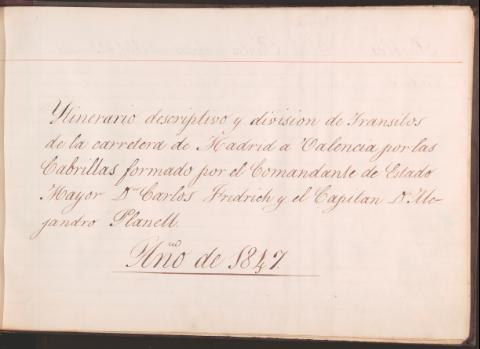 Ytinerario descriptivo y division de Transitos
de la carretera de Madrid a Valencia por las
Cabrillas formado por el Comandante de Estado
Mayor Dn Carlos Fridrich y el Capitan Dn Ale-
jandro Planell.
Año de 1847.